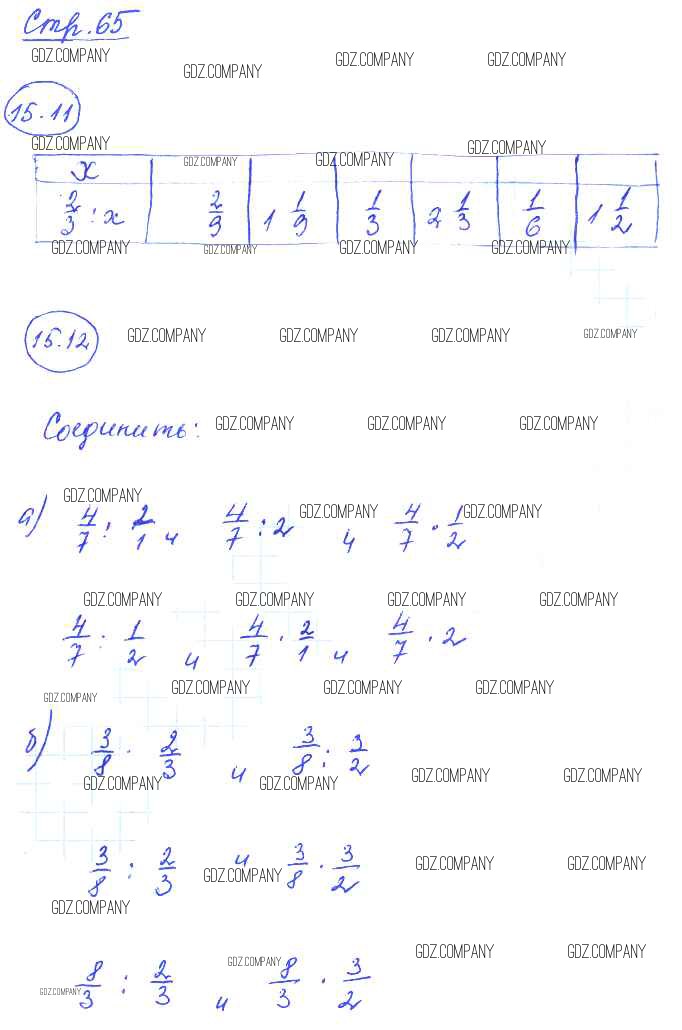 Стр. 65
GDZ.COMPANY GDZ.COMPANY GDZ.COMPANY GDZ.COMPANY
15.11
GDZ.COMPANY GDZ.COMPANY GDZ.COMPANY GDZ.COMPANY
x
2/3 : x 2/9 1 1/9 1/3 2 1/3 1/6 1 1/2
GDZ.COMPANY GDZ.COMPANY GDZ.COMPANY GDZ.COMPANY
15.12 GDZ.COMPANY GDZ.COMPANY GDZ.COMPANY GDZ.COMPANY
Соединить: GDZ.COMPANY GDZ.COMPANY GDZ.COMPANY
GDZ.COMPANY GDZ.COMPANY GDZ.COMPANY
а) 4/7 : 2/1 и 4/7 : 2 и 4/7 · 1/2
GDZ.COMPANY GDZ.COMPANY GDZ.COMPANY GDZ.COMPANY
4/7 : 1/2 и 4/7 · 2/1 и 4/7 · 2
GDZ.COMPANY GDZ.COMPANY GDZ.COMPANY GDZ.COMPANY
б) 3/8 · 2/3 и 3/8 : 3/2
GDZ.COMPANY GDZ.COMPANY GDZ.COMPANY GDZ.COMPANY
3/8 : 2/3 и 3/8 · 3/2
GDZ.COMPANY GDZ.COMPANY GDZ.COMPANY
GDZ.COMPANY
8/3 : 2/3 и 8/3 · 3/2
GDZ.COMPANY GDZ.COMPANY GDZ.COMPANY GDZ.COMPANY